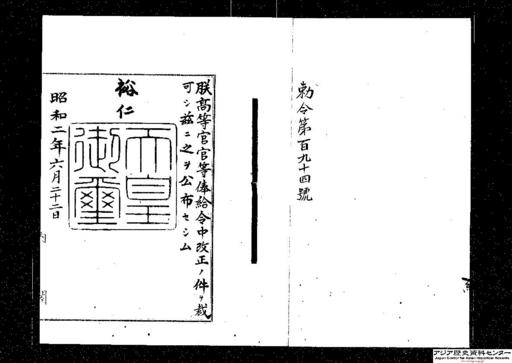 勅令第百九十四號
朕高等官官等俸給令中改正ノ件ヲ裁
可シ茲ニ之ヲ公布セシム
裕仁
天皇
御璽
昭和二年六月二十二日
内閣
アジア歴史資料センター
Japan Center for Asian Historical Records